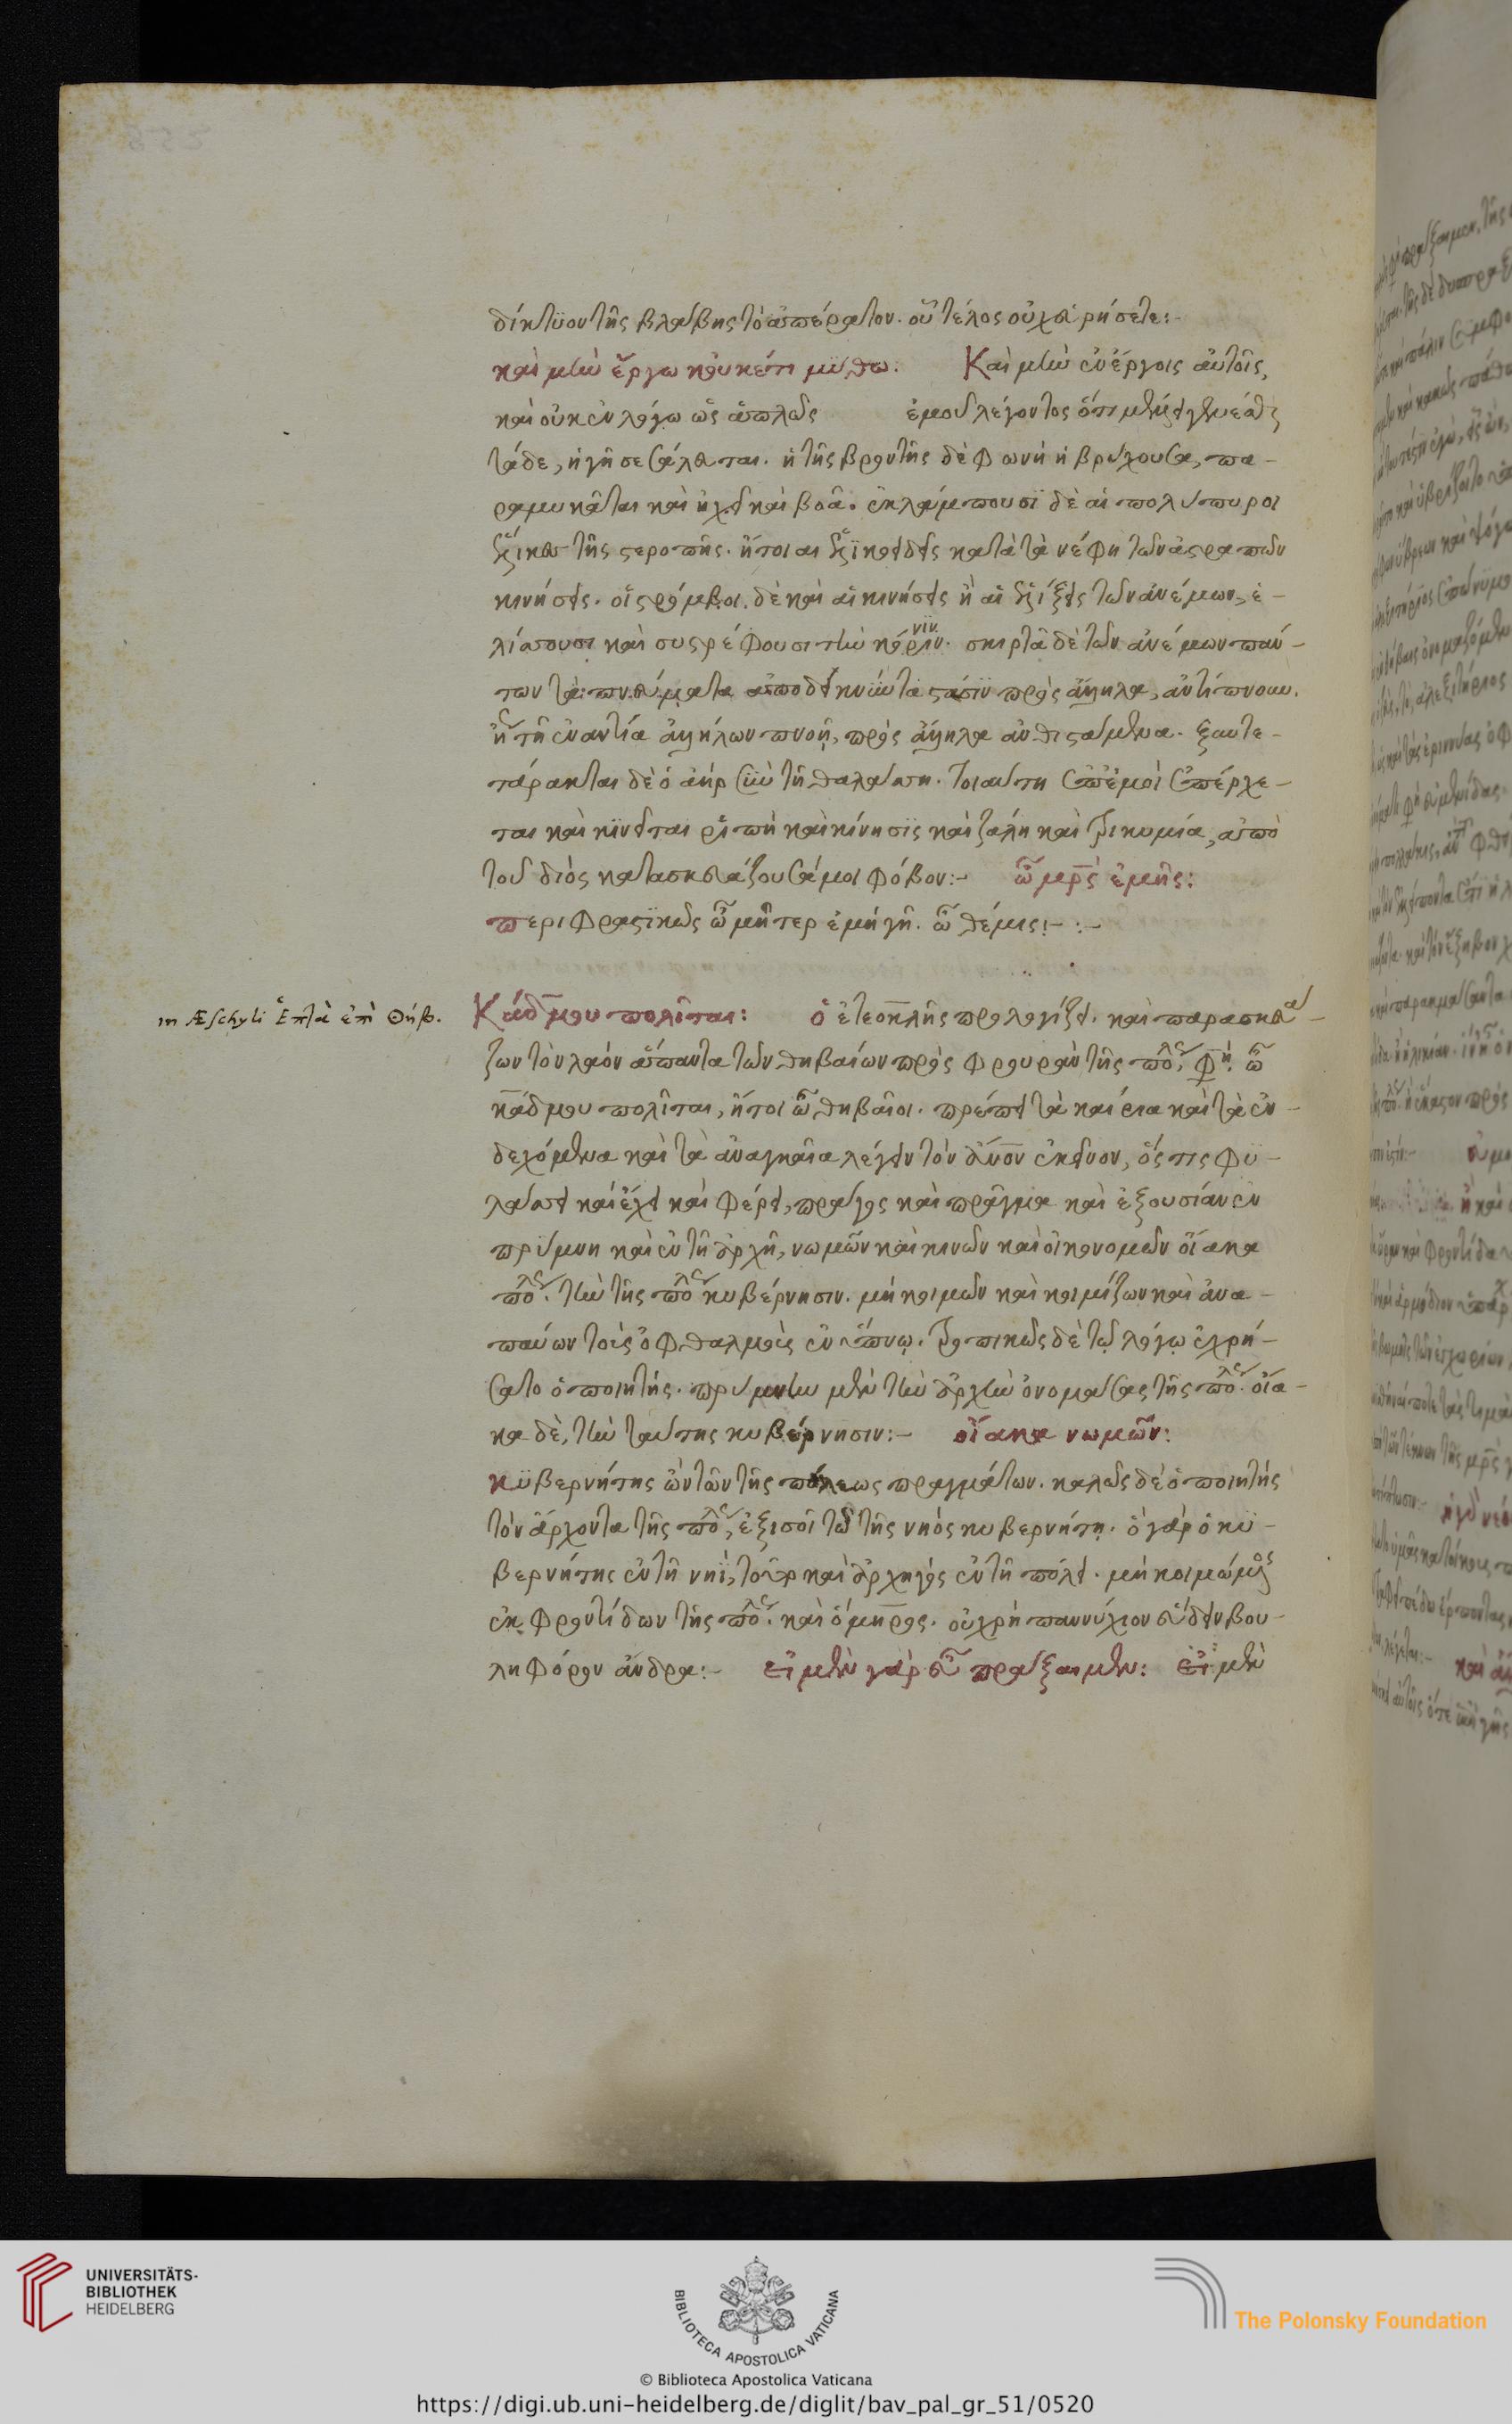 δίκτϋον τῆς βλάβης τὸ ἀπέρατον. οὗ τέλος οὐχ εὑρήσετε:-
καὶ μὴν ἔργω κουκέτι μύθω: Καὶ μὴν ἐν ἔργοις αὐτοῖς,
καὶ οὐκ ἐν λόγω ὡς ἁπλῶς ἐμοῦ λέγοντος ὅτι
τάδε, ἡ γῆ σεσάλευται. ἡ τῆς βροντῆς δὲ φωνὴ ἡ βρύχουσα, πα-
ραμυκᾶται καὶ ἠχεῖ καὶ βοᾶ. ἐκλάμπουσϊ δὲ αἱ πολύπυροι
ἕλικες τῆς στεροπῆς. ἤτοι αἱ ἑλϊκοειδεῖς κατὰ τὰ νέφη τῶν ἀστραπῶν
κινήσεις. οἱ στρόμβοι δὲ καὶ αἱ κινήσεις ἢ αἱ ἑλίξεις τῶν ἀνέμων, ἑ-
λίσσουσι καὶ συστρέφουσι τὴν κόνϊν. σκιρτᾶ δὲ τῶν ἀνέμων πάν-
των τὰ πνεύματα ἀποδεικνύντα στάσϊν πρὸς ἄλληλα, ἀντίπνοων.
ἢ τῆ ἐναντία ἀλλήλων πνοῆ, πρὸς ἄλληλα ἀνθιστάμενα. ξυντε-
τάρακται δὲ ὁ ἀὴρ σὺν τῆ θαλάσση. τοιαύτη ἐπ' ἐμοὶ ἐπέρχε-
ται καὶ κϊνεῖται ῥιπὴ καὶ κίνησϊς καὶ ζάλη καὶ τρικυμία, ἀπὸ
τοῦ διὸς κατασκευάζουσά μοι φόβον:- ὦ μρ̅ς ἐμῆς:
περιφραστϊκῶς ὦ μῆτερ ἐμὴ γῆ. ὦ θέμις:- :-
in Æschyli Ἑπτὰ ἐπὶ Θήβ.
Κάδμου πολῖται: ὁ ἐτεοκλῆς προλογίζει. καὶ παρασκευά-
ζων τὸν λαὸν ἅπαντα τῶν θηβαίων πρὸς φρουρὰν τῆς πόλ, φη. ὦ
κάδμου πολῖται, ἤτοι ὦ θηβαῖοι. πρέπει τὰ καίρια καὶ τὰ ἐν-
δεχόμενα καὶ τὰ ἀναγκαῖα λέγειν τὸν ἄνο̅ν ἐκεῖνον, ὅς τις φϋ-
λάσσει καὶ ἔχει καὶ φέρει, πράγος καὶ πράγμα καὶ ἐξουσίαν ἐν
πρύμνη καὶ ἐν τῆ ἀρχῆ, νωμῶν καὶ κινῶν καὶ οἰκονομῶν οἴακα
πόλ. τὴν τῆς πόλ κυβέρνησιν. μὴ κοιμῶν καὶ κοιμίζων καὶ ἀνα-
παύων τοὺς ὀφθαλμοὺς ἐν ὕπνῳ. τροπικῶς δὲ τῷ λόγῳ ἐχρή-
σατο ὁ ποιητής. πρύμνην μὲν τὴν ἀρχὴν ὀνομάσας τῆς πόλ. οἴα-
κα δὲ, τὴν ταύτης κυβέρνησιν:- οἴακα νωμῶν:
κϋβερνήτης ὢν τῶν τῆς πόλεως πραγμάτων. καλῶς δὲ ὁ ποιητὴς
τὸν ἄρχοντα τῆς πόλ, ἐξισοῖ τῷ τῆς νηὸς κυβερνήτῃ. ὃ γάρ ὁ κϋ-
βερνήτης ἐν τῆ νηϊ, τοῦτο καὶ ἀρχηγὸς ἐν τῆ πόλει. μὴ κοιμώμενος
ἐκ φροντίδων τῆς πόλ. καὶ ὅμηρος. οὐ χρὴ παννύχιον εὕδειν βου-
ληφόρον ἄνδρα:- εἰ μὲν γὰρ εὖ πράξαιμεν: εἰ μὲν
UNIVERSITÄTS-
BIBLIOTHEK
HEIDELBERG
BIBLIOTECA APOSTOLICA VATICANA
The Polonsky Foundation
© Biblioteca Apostolica Vaticana
https://digi.ub.uni-heidelberg.de/diglit/bav_pal_gr_51/0520